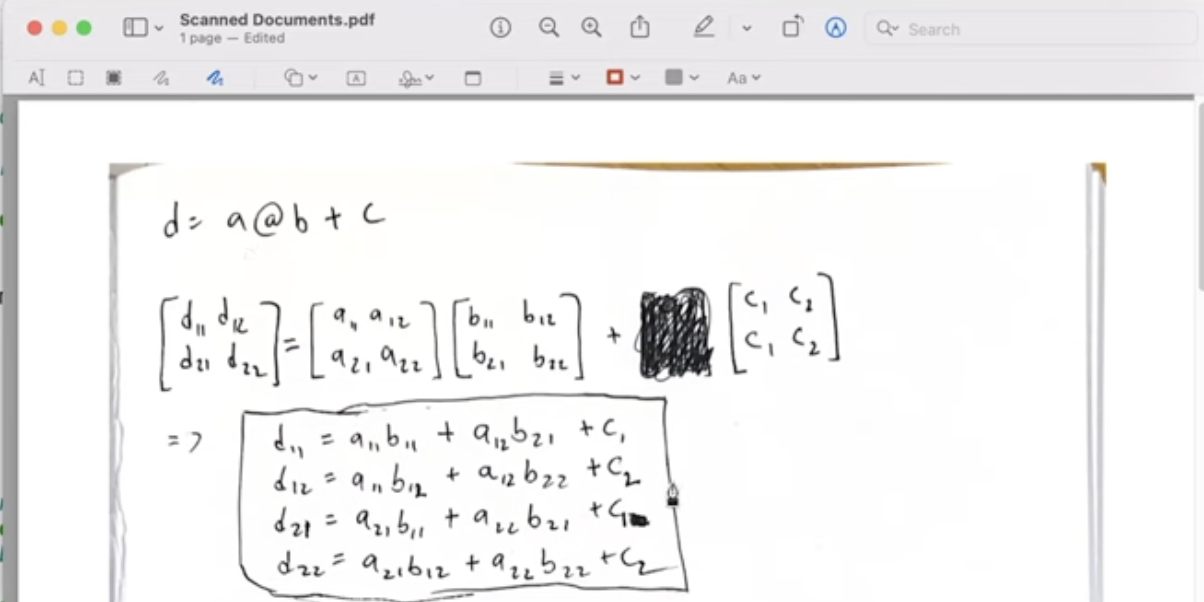 Scanned Documents.pdf
1 page — Edited
Search
Aa
d = a@b + c
[d₁₁ d₁₂] = [a₁₁ a₁₂] [b₁₁ b₁₂] + [c₁ c₂]
[d₂₁ d₂₂] [a₂₁ a₂₂] [b₂₁ b₂₂] [c₁ c₂]
=> d₁₁ = a₁₁b₁₁ + a₁₂b₂₁ + c₁
d₁₂ = a₁₁b₁₂ + a₁₂b₂₂ + c₂
d₂₁ = a₂₁b₁₁ + a₂₂b₂₁ + c₁
d₂₂ = a₂₁b₁₂ + a₂₂b₂₂ + c₂